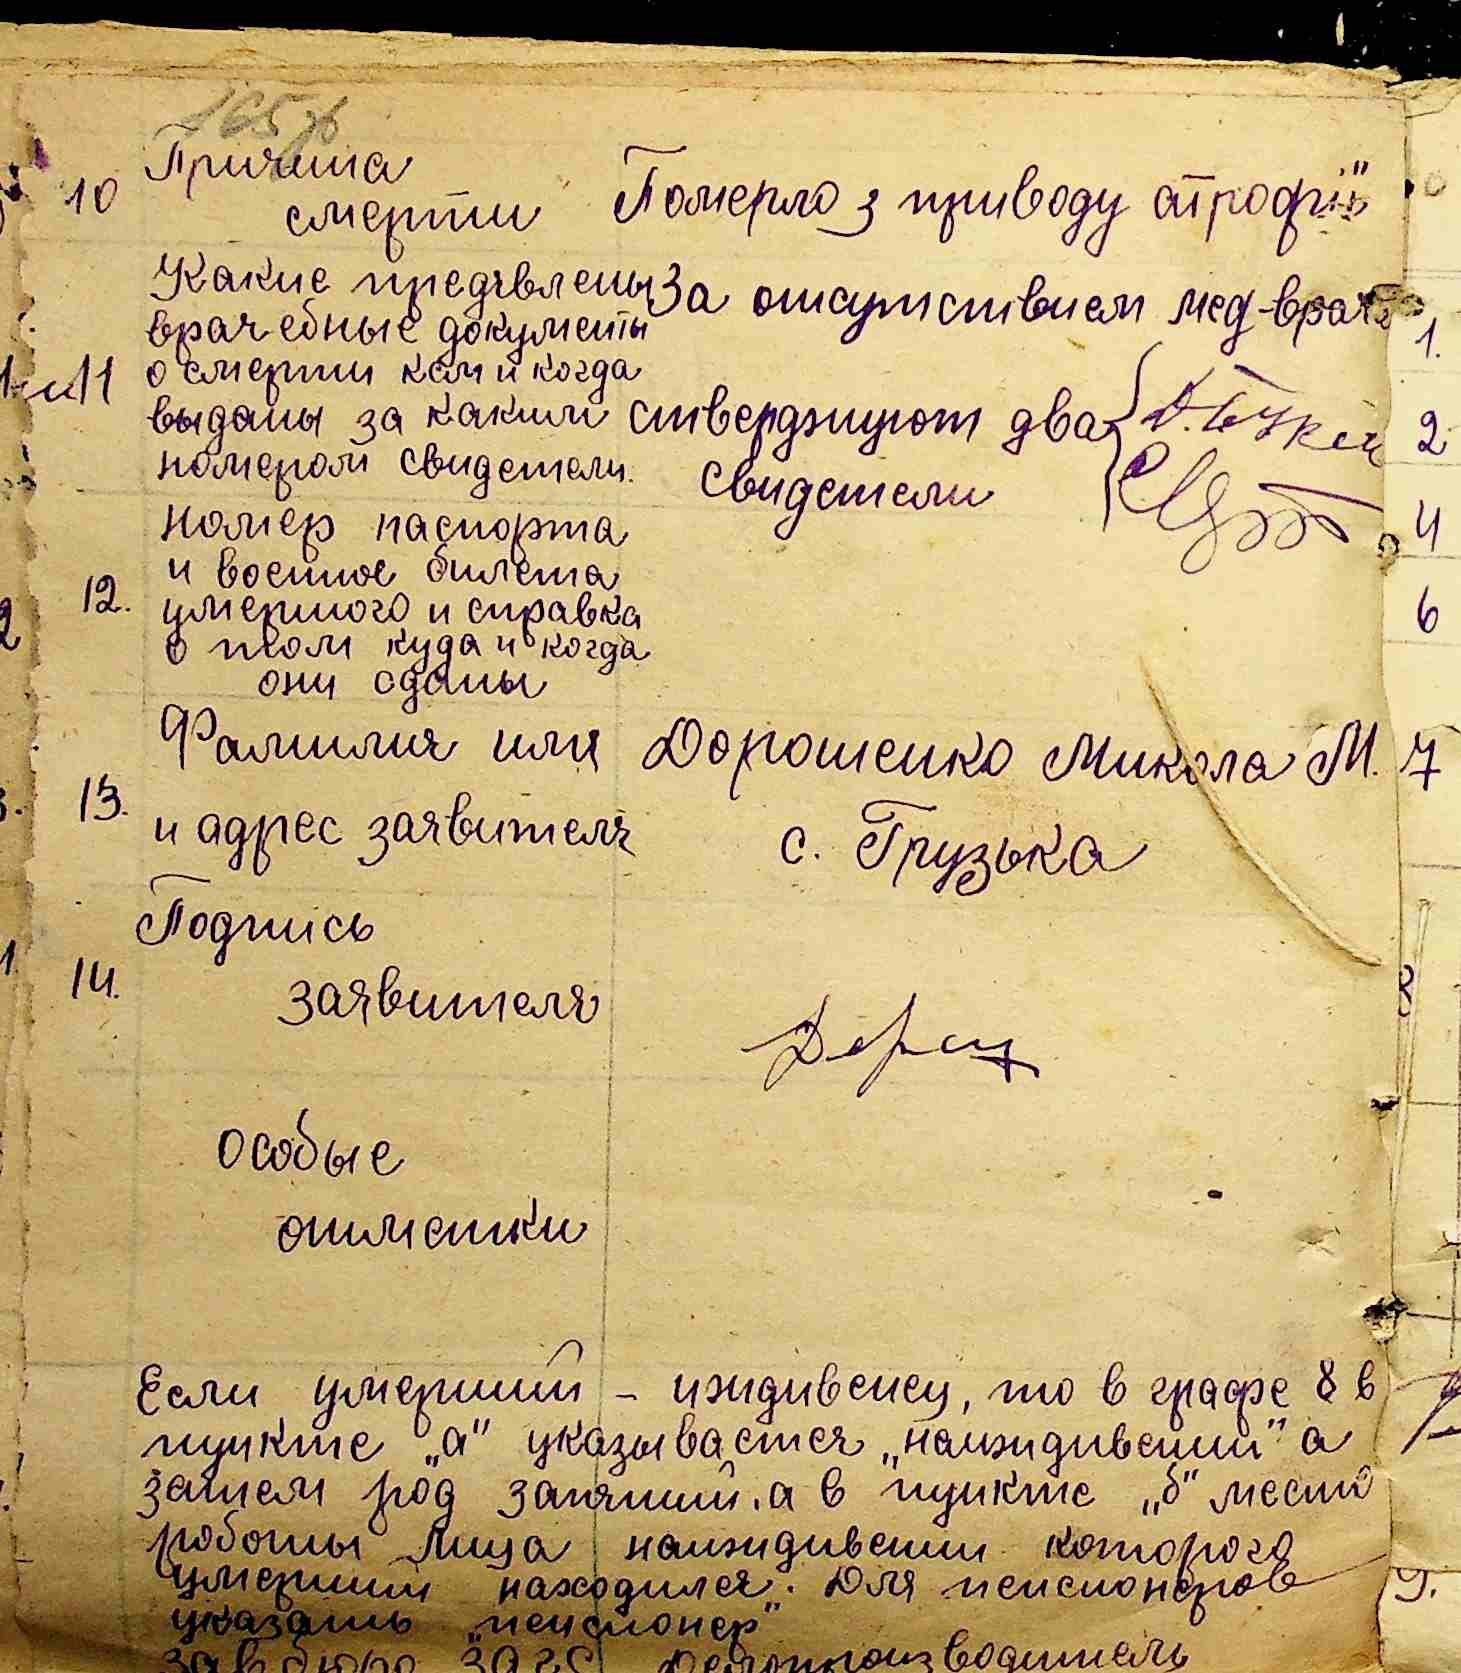 165
10 Причина
смерти Померло з приводу атрофії"
Какие предявлены За отсутствием мед-врача
врачебные документы
11 о смерти кем и когда
выданы за каким стверджуют два
номером свидетели. свидетели
номер паспорта
и военное билета
12. умершого и справка
о том куда и когда
они сданы
Фамилия имя Дорошенко Микола М.
13.
и адрес заявителя с. Грузька
Подпись
14. заявителя
особые
отметки
Если умерший - иждивенец, то в графе 8 в
пункте „а" указывается „наиждивении" а
затем род занятий, а в пункте „б" место
роботы лица наиждивении которого
умерший находился. Для пенсионеров
указать „пенсионер"
Зав бюро Загс Делопроизводитель
1.
2
4
6
7
8
9.